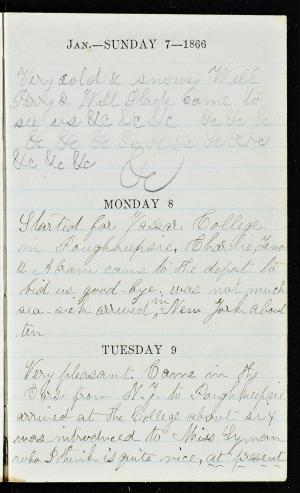 Jan.—SUNDAY 7—1866
Very cold & snowy Will
& Will Slade came to
see us &c &c &c &c &c &c
&c &c &c &c &c &c &c &c
&c &c &c
&c
MONDAY 8
Started for Vassar College
in Poughkeepsie. Charlie,
& Adam came to the depot to
bid us good-bye. was not much
sea-sick arrived in New York about
ten
TUESDAY 9
Very pleasant. Came in the
Cars from N.Y. to Poughkeepsie
arrived at the College about six
was introduced to Miss Lyman
who I think is quite nice, at present